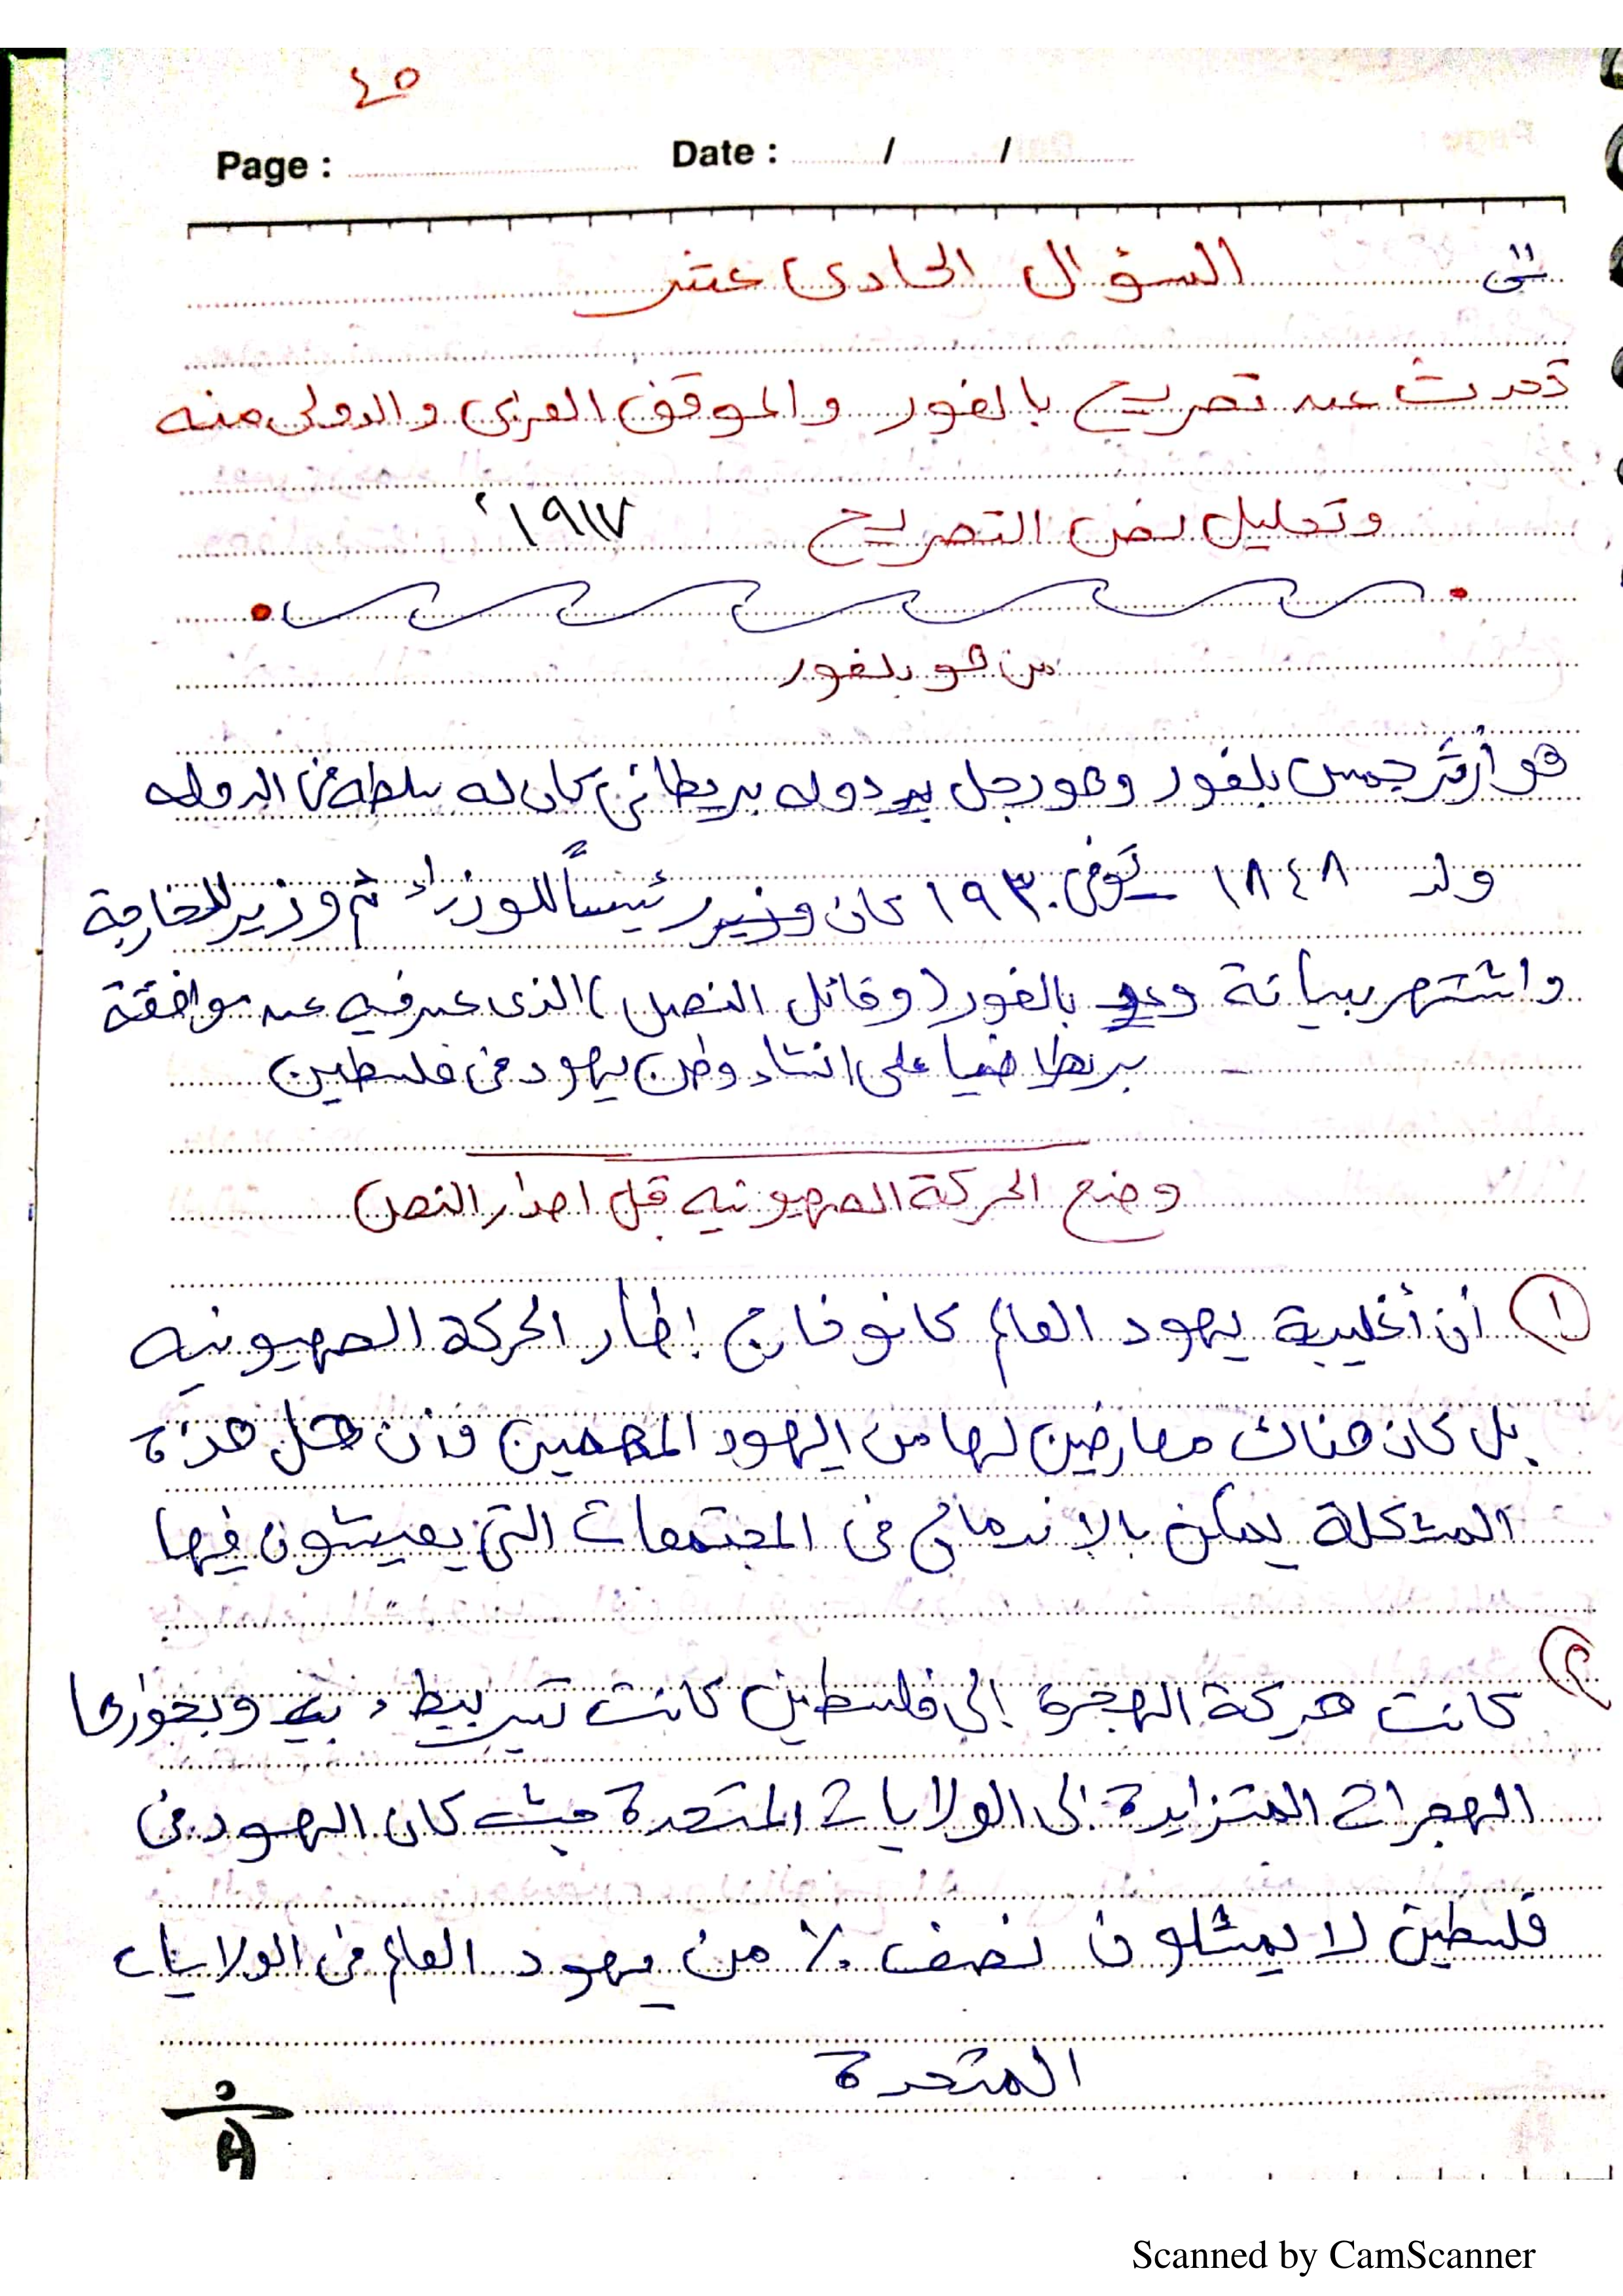 ٤٥
Page : Date : / /
س١١ السؤال الحادى عشر
تحدث عن تصريح بالفور والموقف العربى والدولى منه
وتحليل نص التصريح ١٩١٧
من هو بلفور
هو أرثر جمس بلفور وهو رجل دوله بريطانى كان له سلطه فى الدوله
ولد ١٨٤٨ توفى ١٩٣٠ كان رئيساً للوزراء ثم وزير للخارجة
واشتهر ببيانة وعد بالفور (وقائل النص) الذى عبر فيه عن موافقة
بريطانيا على انشاء وطن يهود فى فلسطين
وضع الحركة الصهيونيه قبل اصدار النص
١ أن أغلبية يهود العالم كانو خارج إطار الحركة الصهيونيه
بل كان هناك معارضين لها من اليهود المهمين وأن حل هذة
المشكلة يمكن بالاندماج فى المجتمعات التى يعيشون فيها
٢ كانت حركة الهجرة إلى فلسطين كانت تسير ببطء وبخوارها
الهجرات المتزايدة إلى الولايات المتحدة حيث كان اليهود فى
فلسطين لا يمثلون نصف ٪ من يهود العالم فى الولايات
المتحدة
Scanned by CamScanner